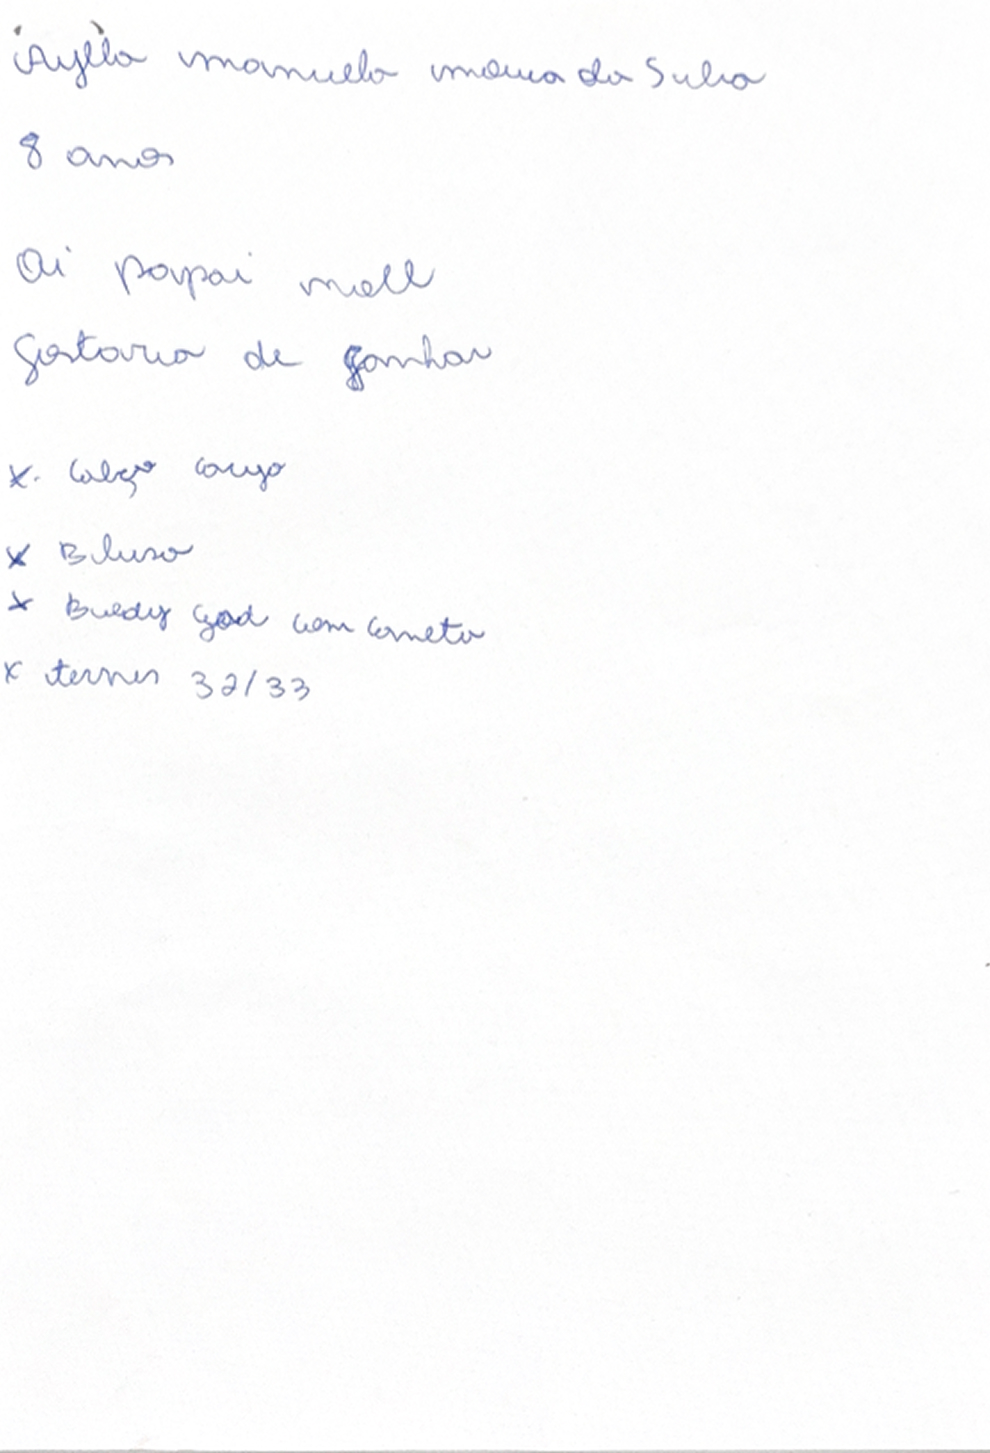 Aylla manuela maria da Silva
8 anos
Oi papai noell
Gostaria de ganhar
x. Calça cargo
x Blusa
x Buedy god com caneta
x tennis 32/33